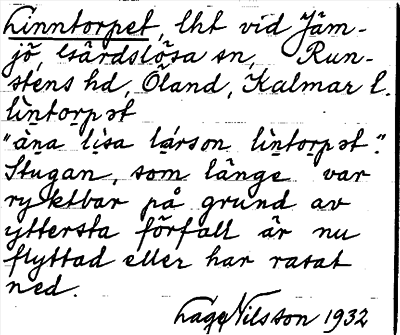 Linntorpet, lht vid Jäm-
jö, Gärdslösa sn, Run-
stens hd, Öland, Kalmar l.
lìntorpət
"àna lisa lárson lìntorpət".
Stugan, som länge var
ryktbar på grund av
yttersta förfall är nu
flyttad eller har rasat
ned.
Lage Nilsson 1932